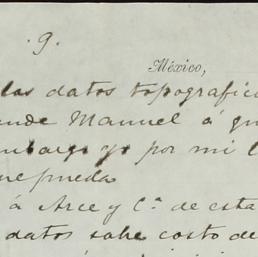 .9.
México,
los datos topografico
ande Manuel á qu
mbargo yo por mi l
ue pueda
á Arce y Cª de esta
datos sobe costo de